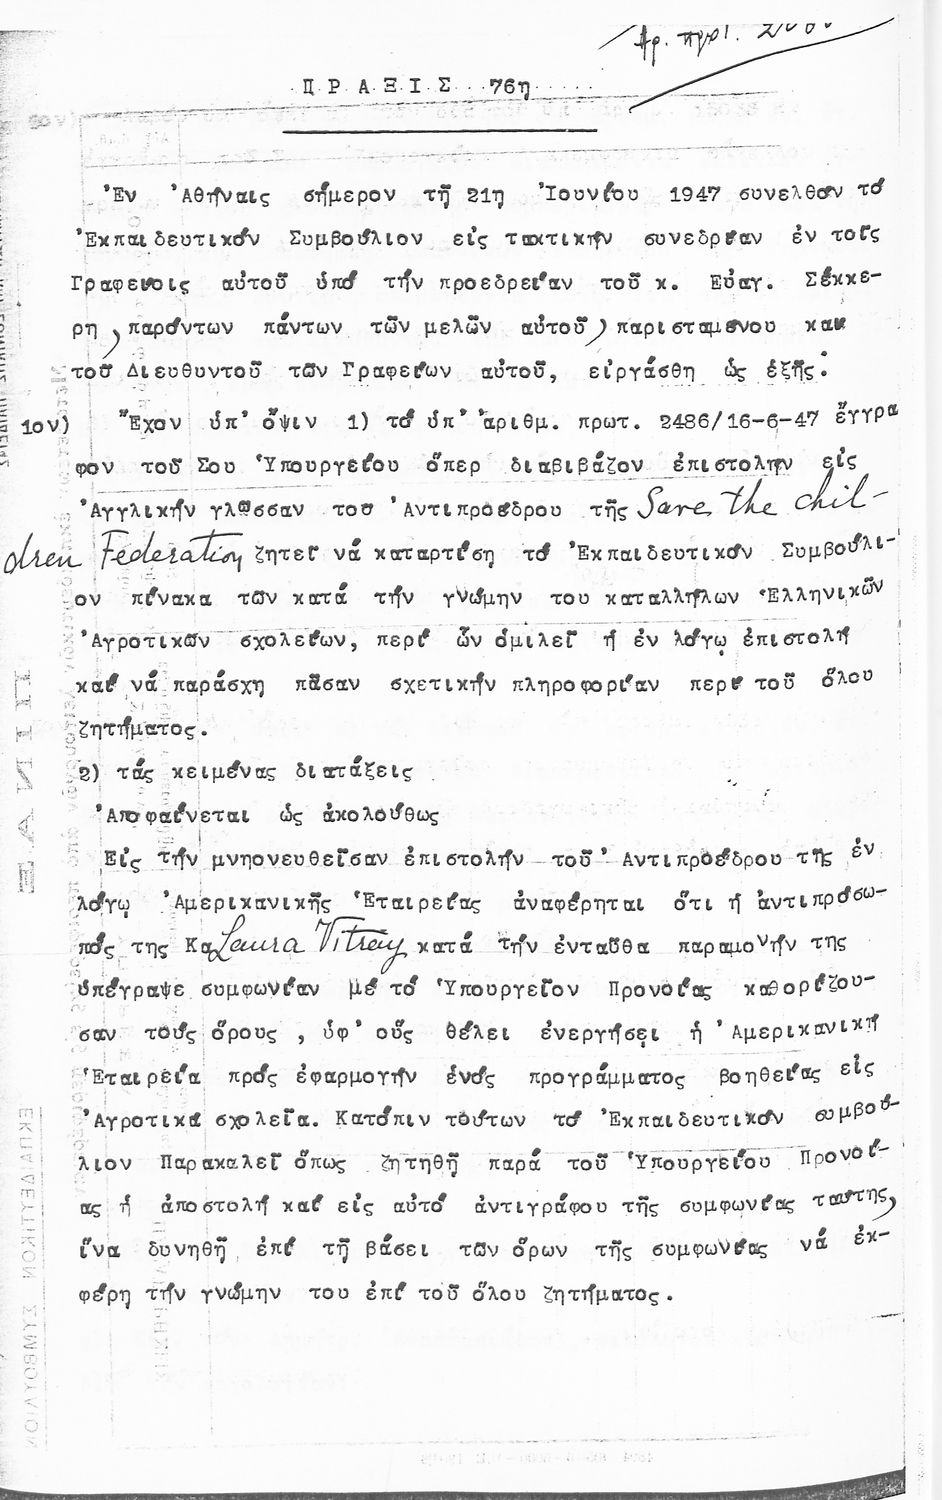 Αρ. πρι.
ΠΡΑΞΙΣ 76η
Ἐν Ἀθήναις σήμερον τῇ 21η Ἰουνίου 1947 συνελθόν τό
Ἐκπαιδευτικόν Συμβούλιον εἰς τακτικήν συνεδρίαν ἐν τοῖς
Γραφείοις αὐτοῦ ὑπό τήν προεδρείαν τοῦ κ. Εὐαγ. Σέκκε-
ρη, παρόντων πάντων τῶν μελῶν αὐτοῦ, παρισταμένου καί
τοῦ Διευθυντοῦ τῶν Γραφείων αὐτοῦ, εἰργάσθη ὡς ἑξῆς:
1ον) Ἔχον ὑπ' ὄψιν 1) τό ὑπ' ἀριθμ. πρωτ. 2486/16-6-47 ἔγγρα
φον τοῦ Σου Ὑπουργείου ὅπερ διαβιβάζον ἐπιστολήν εἰς
Ἀγγλικήν γλῶσσαν τοῦ Ἀντιπροέδρου τῆς Save the chil-
dren Federation ζητεῖ νά καταρτίση τό Ἐκπαιδευτικόν Συμβούλι-
ον πίνακα τῶν κατά τήν γνώμην του καταλλήλων Ἑλληνικῶν
Ἀγροτικῶν σχολείων, περί ὧν ὁμιλεῖ ἡ ἐν λόγῳ ἐπιστολή
καί νά παράσχη πᾶσαν σχετικήν πληροφορίαν περί τοῦ ὅλου
ζητήματος.
2) τάς κειμένας διατάξεις
Ἀποφαίνεται ὡς ἀκολούθως
Εἰς τήν μνηονευθεῖσαν ἐπιστολήν τοῦ Ἀντιπροέδρου τῆς ἐν
λόγῳ Ἀμερικανικῆς Ἑταιρείας ἀναφέρηται ὅτι ἡ ἀντιπρόσω-
πός της Κα Laura Vitray κατά τήν ἐνταῦθα παραμονήν της
ὑπέγραψε συμφωνίαν μέ τό Ὑπουργεῖον Προνοίας καθορίζου-
σαν τούς ὅρους , ὑφ' οὕς θέλει ἐνεργήσει ἡ Ἀμερικανική
Ἑταιρεία πρός ἐφαρμογήν ἑνός προγράμματος βοηθείας εἰς
Ἀγροτικά σχολεῖα. Κατόπιν τούτων τό Ἐκπαιδευτικόν συμβού-
λιον Παρακαλεῖ ὅπως ζητηθῇ παρά τοῦ Ὑπουργείου Προνοί-
ας ἡ ἀποστολή καί εἰς αὐτό ἀντιγράφου τῆς συμφωνίας ταύτης,
ἵνα δυνηθῇ ἐπί τῇ βάσει τῶν ὅρων τῆς συμφωνίας νά ἐκ-
φέρη τήν γνώμην του ἐπί τοῦ ὅλου ζητήματος.